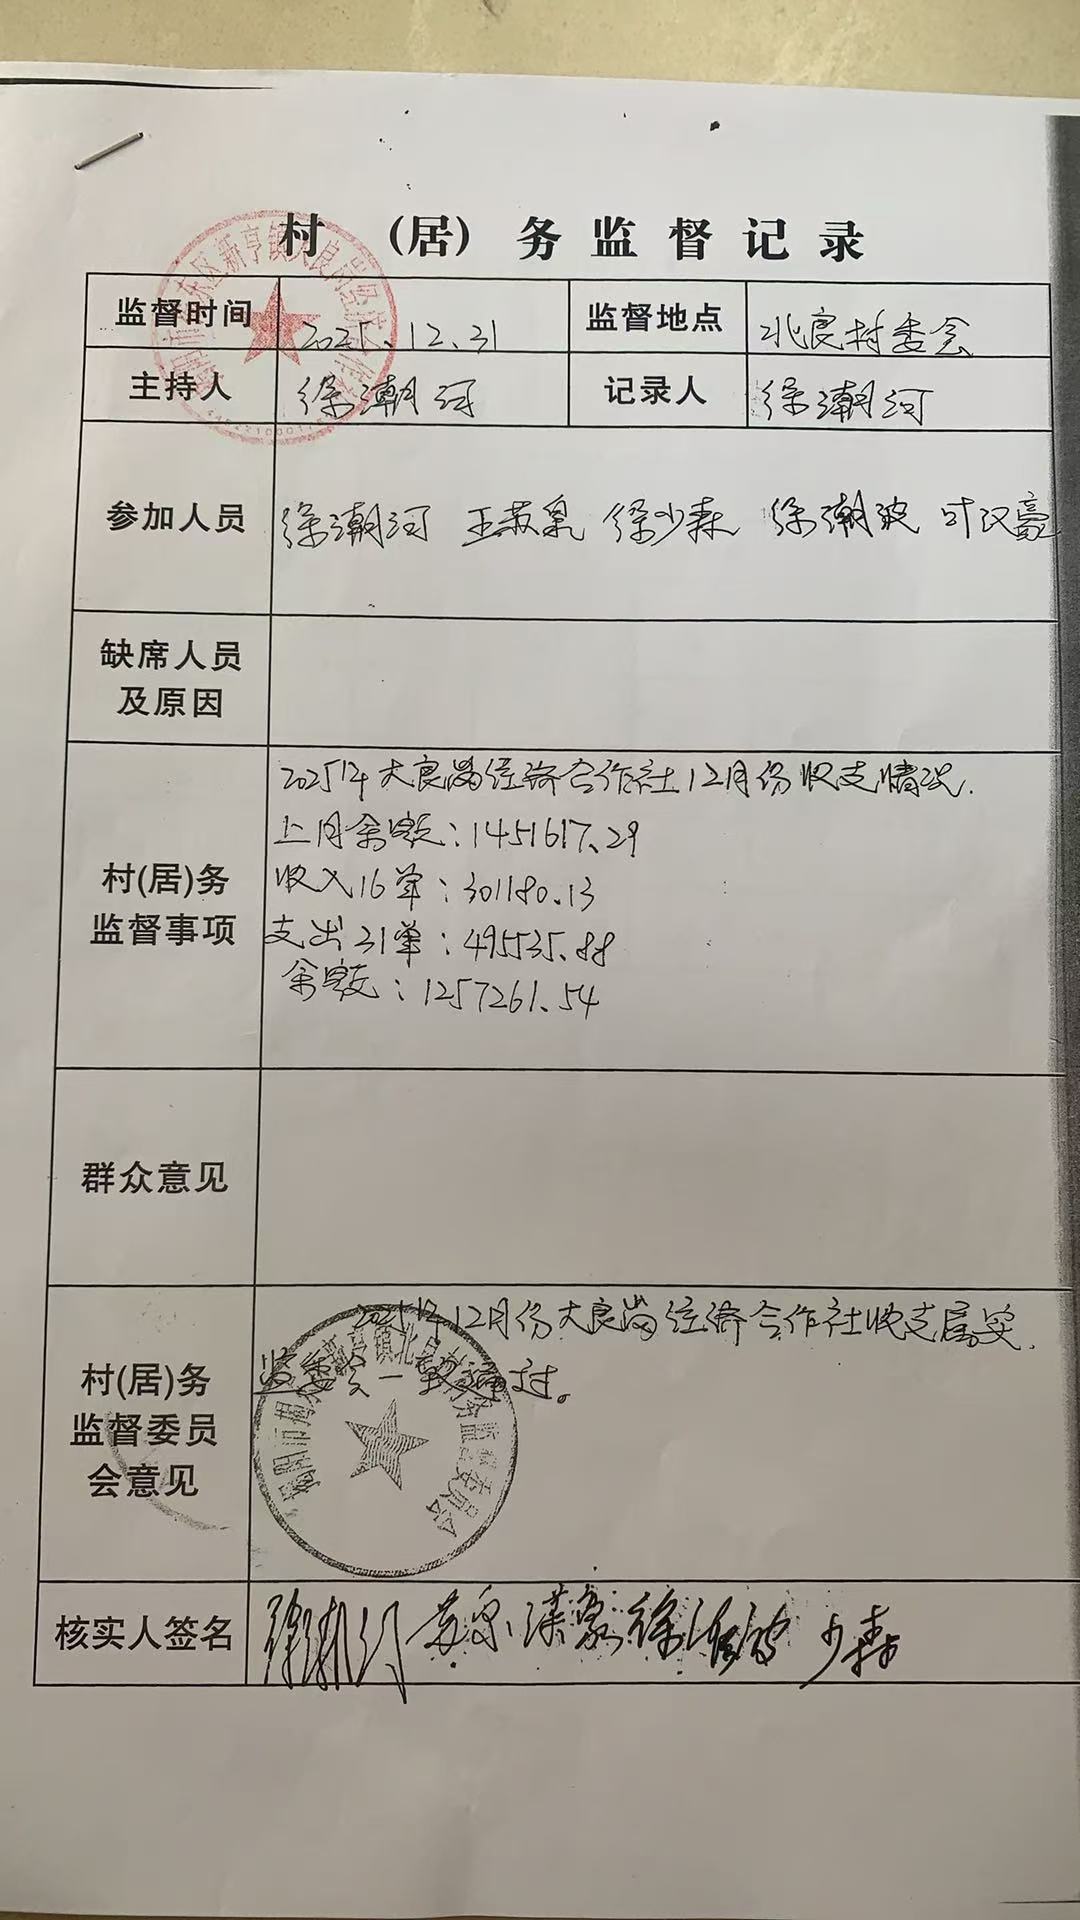 村 （居）务监督记录
监督时间 2025.12.31 监督地点 北良村委会
主持人 徐潮河 记录人 徐潮河
参加人员 徐潮河 王苏泉 徐少森 徐潮波 叶汉豪
缺席人员
及原因
村(居)务
监督事项
2025年大良岗经济合作社12月份收支情况.
上月余额:1451617.29
收入16单:301180.13
支出31单:495535.88
余额:1257261.54
群众意见
村(居)务
监督委员
会意见
2025年12月份大良岗经济合作社收支属实.
监委会一致通过。
核实人签名 苏泉 汉豪 少森